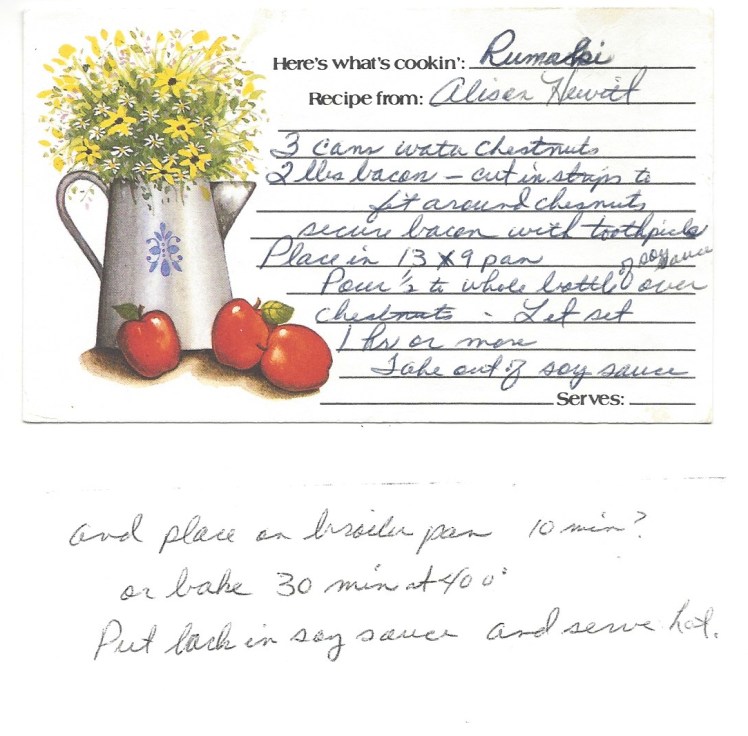 Here's what's cookin': Rumaki
Recipe from: Alison Hewitt
3 cans water chestnuts
2 lbs bacon – cut in strips to
fit around chesnuts
secure bacon with toothpicks
Place in 13 x 9 pan
of soy sauce
Pour ½ to whole bottle over
chestnuts - Let set
1 hr or more
Take out of soy sauce
Serves:
and place on broiler pan 10 min?
or bake 30 min at 400°
Put back in soy sauce and serve hot.